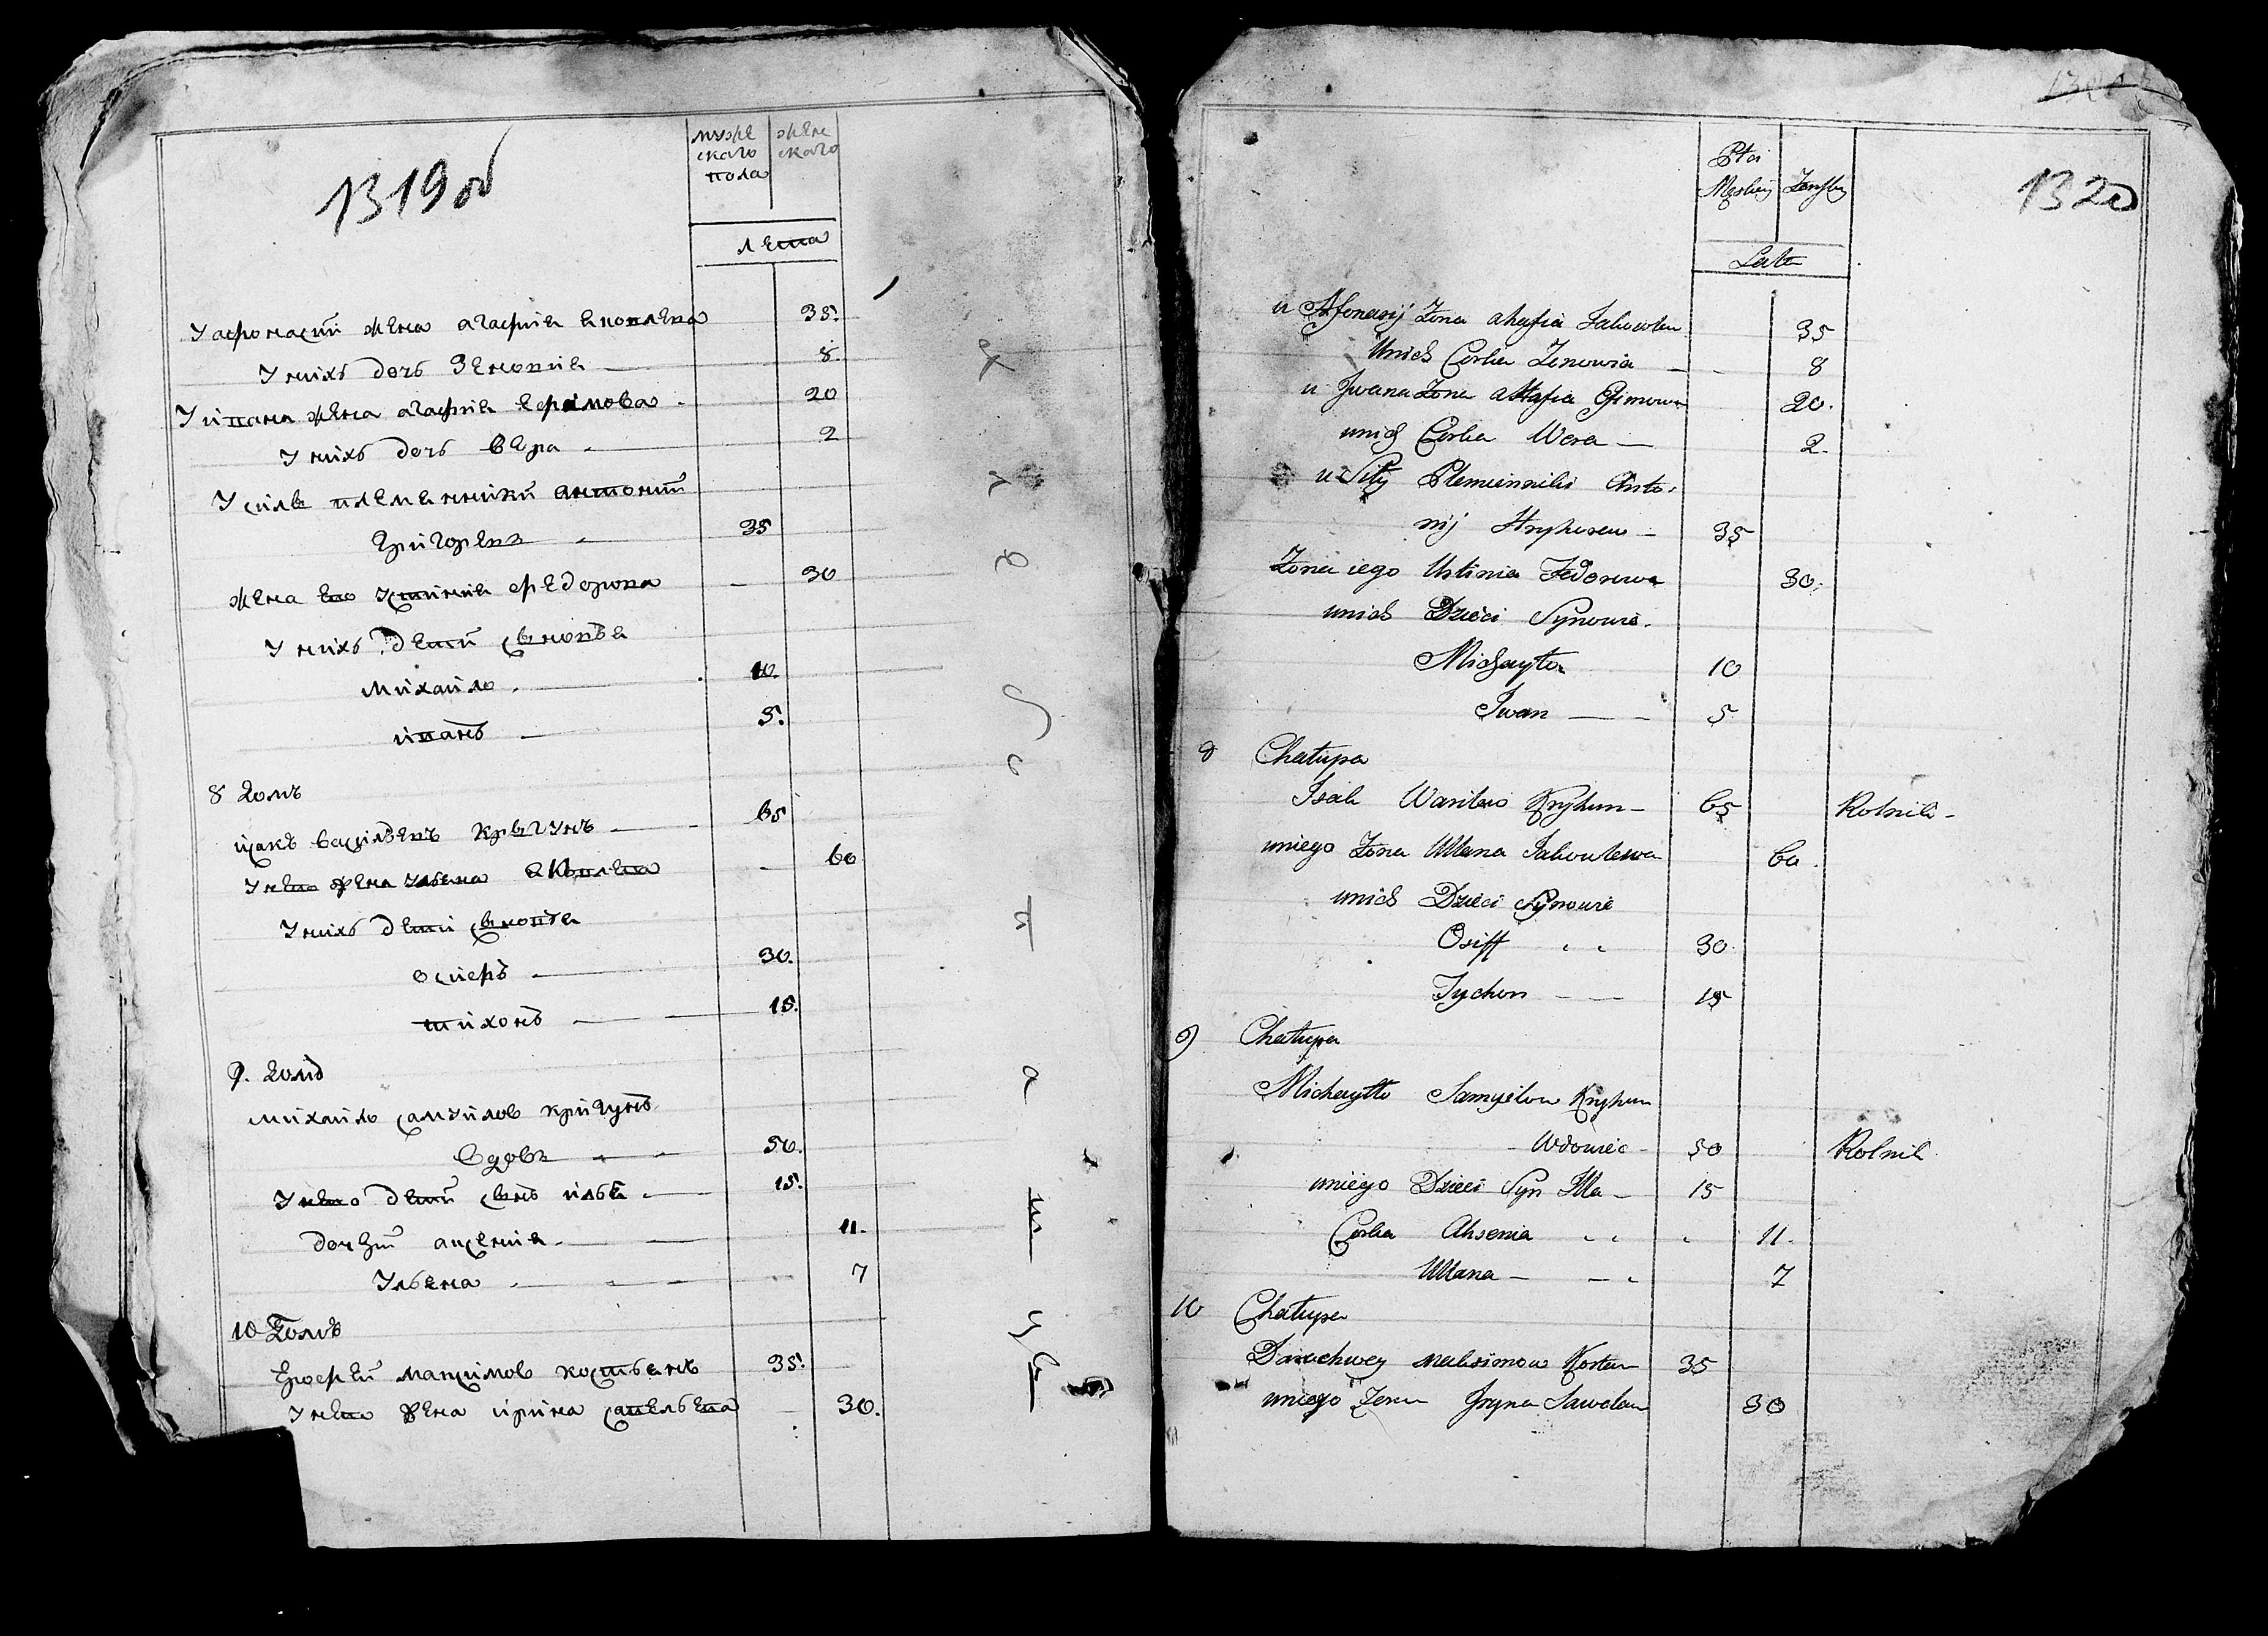 1319об
муже
скаго
пола
жен
скаго
лета
У афонасіи жена агафия яковлева 35.
У нихъ дочь Зеновия 8.
У ивана жена агафия ефимова 20
У нихъ дочь вера 2
У силы племенники антонии
Григорев 35
жена ево устиния федорова 30
У нихъ дети сыновья
Михаило 10.
иванъ 5.
8 домъ
исакъ васильевъ крыгунъ 65
У нево жена ульяна яковлева 60
У нихъ дети сыновья
осифъ 30.
тихонъ 15.
9. домъ
михаило самуилов кригунъ
вдовъ 50.
У нево дети сынъ илья 15.
дочери аксения 11.
Ульяна 7
10 домъ
Ерофеи максимов костянъ 35.
У нево жена ирина савельева 30.
1320
Płci
Męskiej Żeńskiej
Lata
u Afonasij Zona ahafia Jakowlew 35
Unich Corka Zenowia 8
u Jwana Zona ahafia Efimowa 20.
unich Corka Wera 2.
u Siły Plemienniki Anto-
nij Hryhorew 35
Zona iego Ustinia Fedorowa 30.
unich Dzieci Synowie.
Michayło 10
Jwan 5
8 Chałupa
Isak Wasilew Kryhun 65 Rolnik
uniego Zona Ullana Jakowlewa 60.
unich Dzieci Synowie
Osiff 30.
Tychon 15
9 Chałupa
Michayłło Samyilow Kryhun
Wdowiec 50 Rolnik
uniego Dzieci Syn Illa 15
Corka Aksenia 11.
Ullana 7
10 Chałupa
maksimow Kostan 35
uniego Zona Jryna Sawelew 30